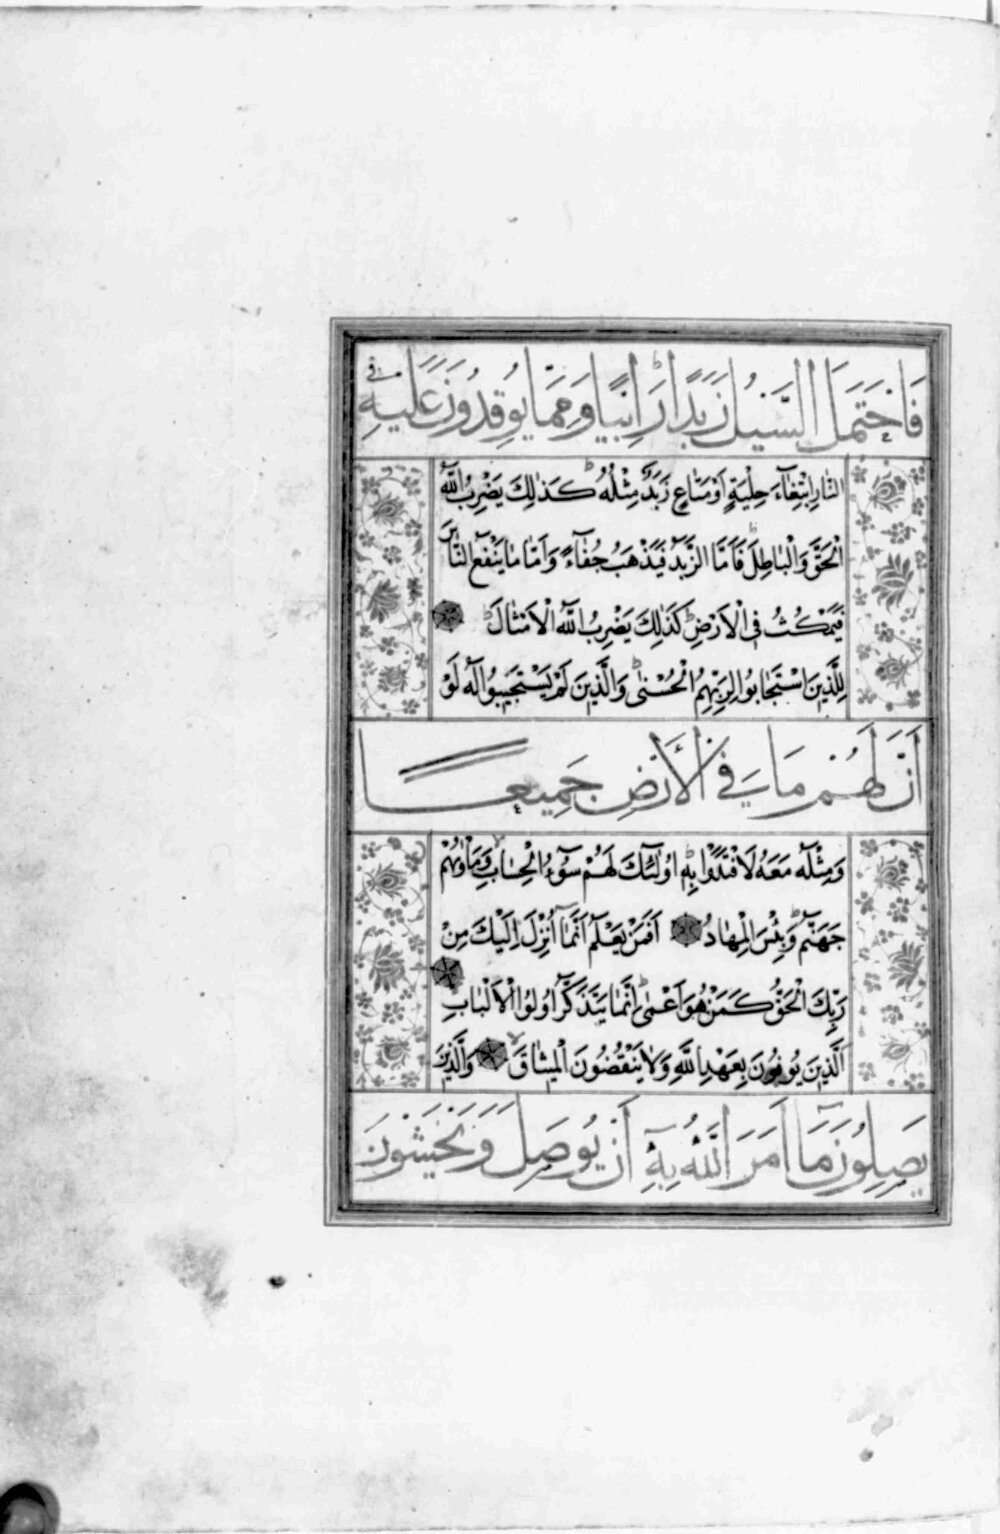 فَاحْتَمَلَ السَّيْلُ زَبَدًا رَابِيًا وَمِمَّا يُوقِدُونَ عَلَيْهِ فِي
النَّارِ ابْتِغَآءَ حِلْيَةٍ اَوْ مَتَاعٍ زَبَدٌ مِثْلُهُ كَذٰلِكَ يَضْرِبُ اللّٰهُ
الْحَقَّ وَالْبَاطِلَ فَاَمَّا الزَّبَدُ فَيَذْهَبُ جُفَآءً وَاَمَّا مَا يَنْفَعُ النَّاسَ
فَيَمْكُثُ فِي الْاَرْضِ كَذٰلِكَ يَضْرِبُ اللّٰهُ الْاَمْثَالَ
لِلَّذِينَ اسْتَجَابُوا لِرَبِّهِمُ الْحُسْنٰى وَالَّذِينَ لَمْ يَسْتَجِيبُوا لَهُ لَوْ
أَنَّ لَهُمْ مَا فِي الْأَرْضِ جَمِيعًا
وَمِثْلَهُ مَعَهُ لَافْتَدَوْا بِهِ اُولٰئِكَ لَهُمْ سُوٓءُ الْحِسَابِ وَمَاْوٰيهُمْ
جَهَنَّمُ وَبِئْسَ الْمِهَادُ اَفَمَنْ يَعْلَمُ اَنَّمَآ اُنْزِلَ اِلَيْكَ مِنْ
رَبِّكَ الْحَقُّ كَمَنْ هُوَ اَعْمٰى اِنَّمَا يَتَذَكَّرُ اُولُوا الْاَلْبَابِ
الَّذِينَ يُوفُونَ بِعَهْدِ اللّٰهِ وَلَا يَنْقُضُونَ الْمِيثَاقَ وَالَّذِينَ
يَصِلُونَ مَآ اَمَرَ اللّٰهُ بِهٓ أَنْ يُوصَلَ وَيَخْشَوْنَ